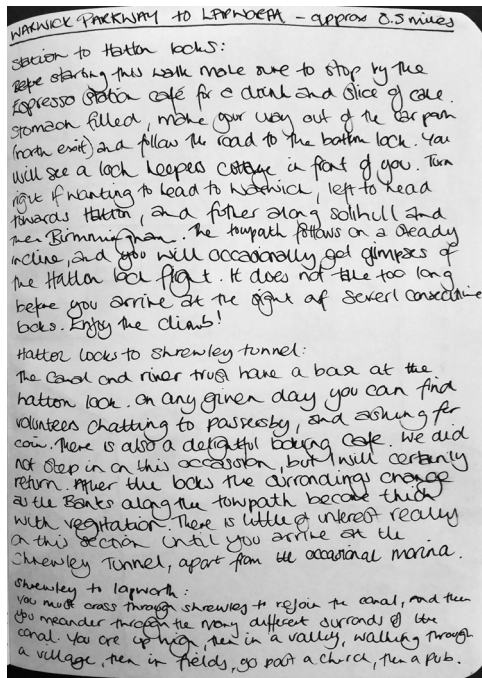 WARWICK PARKWAY to LAPWORTH - approx 8.5 miles
Station to Hatton locks:
Before starting this walk make sure to stop by the
Espresso Station café for a drink and slice of cake.
Stomach filled, make your way out of the car park
(north exit) and follow the road to the bottom lock. You
will see a lock keepers cottage in front of you. Turn
right if wanting to head to Warwick, left to head
towards Hatton, and futher along solihull and
then Birmmingham. The towpath follows on a steady
incline, and you will occasionally get glimpses of
the Hatton lock flight. It does not take too long
before you arrive at the sight of severl consecutive
locks. Enjoy the climb!
Hatton locks to Shrewley tunnel:
The Canal and river trust have a base at the
hatton lock. On any given day you can find
volunteers chatting to passersby, and asking for
coin. There is also a delightful looking café. We did
not step in on this occassion, but I will certainly
return. After the locks the surrondings change
as the Banks along the towpath become thick
with vegitation. There is little of interest really
on this section until you arrive at the
Shrewley Tunnel, apart from the occasional marina.
Shrewley to lapworth:
you must cross through shrewley to rejoin the canal, and then
you meander through the many different surronds of the
canal. You are up high, then in a valley, walking through
a village, then in fields, go past a church, then a pub.